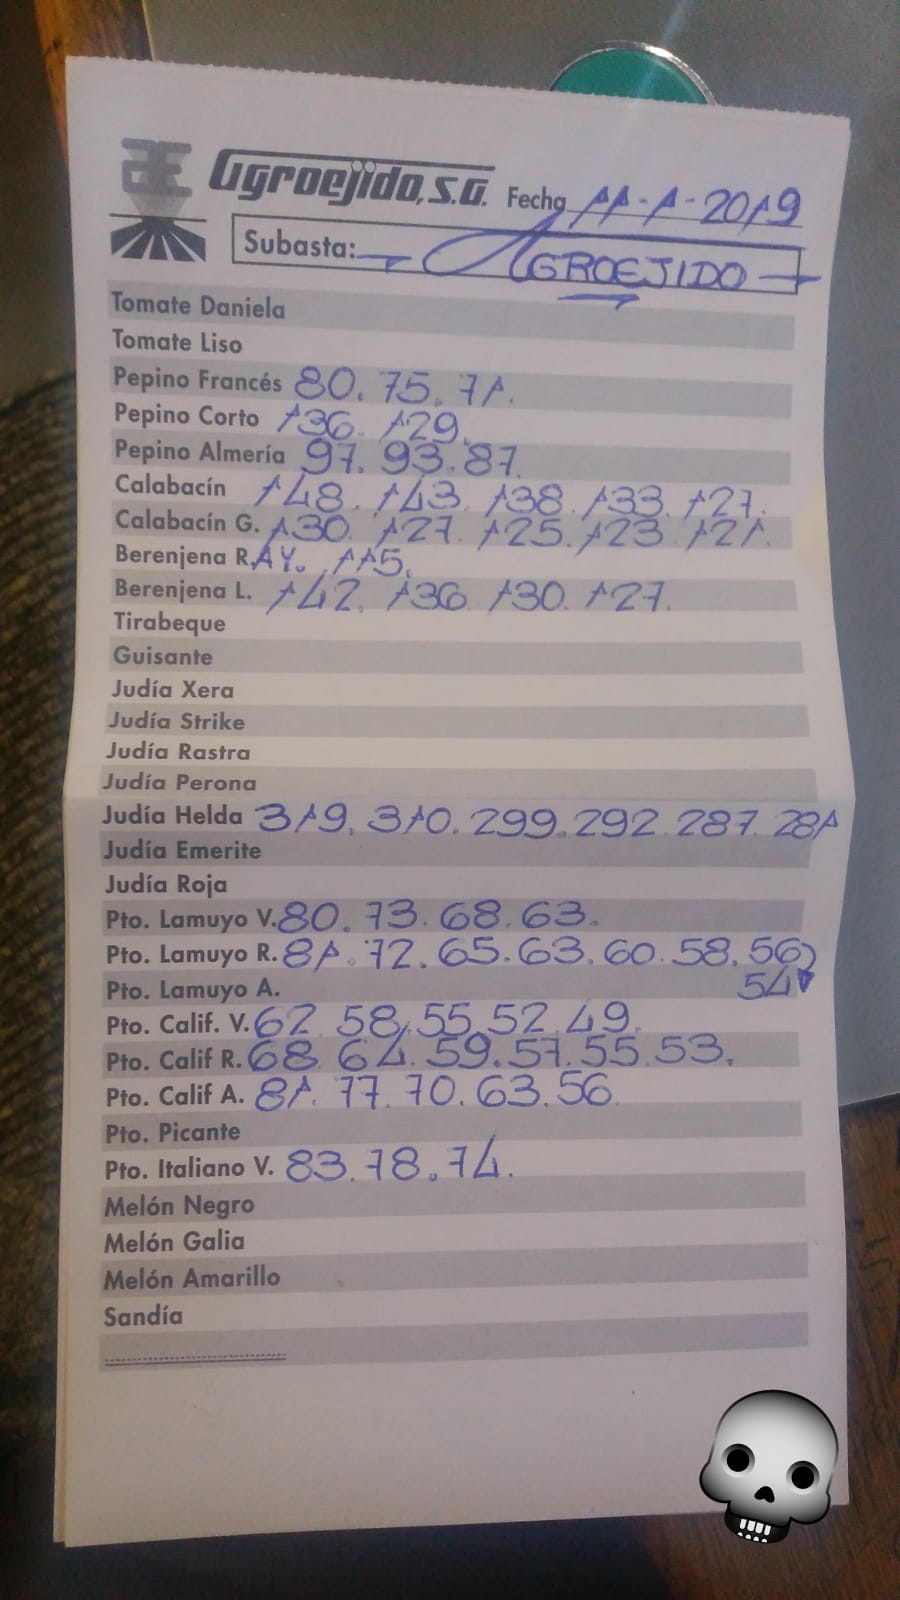 Agroejido, S.A. Fecha 11-1-2019
Subasta: AGROEJIDO
Tomate Daniela
Tomate Liso
Pepino Francés 80. 75. 71.
Pepino Corto 136. 129.
Pepino Almería 97. 93. 87.
Calabacín 148. 143. 138. 133. 127.
Calabacín G. 130. 127. 125. 123. 121.
Berenjena R.AY. 115.
Berenjena L. 142. 136. 130. 127.
Tirabeque
Guisante
Judía Xera
Judía Strike
Judía Rastra
Judía Perona
Judía Helda 319. 310. 299. 292. 287. 281
Judía Emerite
Judía Roja
Pto. Lamuyo V. 80. 73. 68. 63.
Pto. Lamuyo R. 81. 72. 65. 63. 60. 58. 56
54
Pto. Lamuyo A.
Pto. Calif. V. 62. 58. 55. 52. 49.
Pto. Calif R. 68. 64. 59. 57. 55. 53.
Pto. Calif A. 81. 77. 70. 63. 56.
Pto. Picante
Pto. Italiano V. 83. 78. 74.
Melón Negro
Melón Galia
Melón Amarillo
Sandía